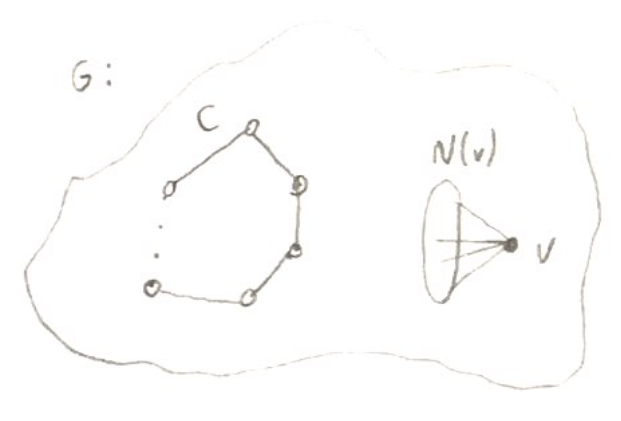 G:
C
N(v)
v